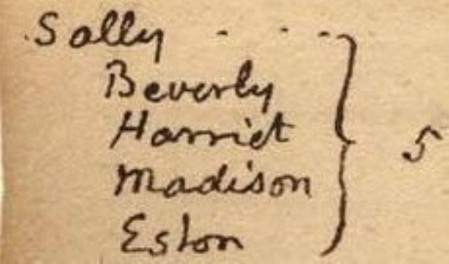 Sally - - - -
Beverly
Harriet
Madison
Eston
5